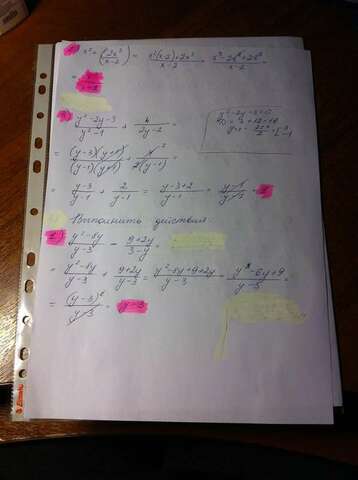 x² + (2x²/x-2) = x²(x-2)+2x²/x-2 = x³-2x²+2x²/x-2 =
= x³/x-2
y²-2y-3/y²-1 + 4/2y-2 =
= (y-3)(y+1)/(y-1)(y+1) + 4²/2(y-1) =
= y-3/y-1 + 2/y-1 = y-3+2/y-1 = y-1/y-1 = 1
Выполнить действия
y²-8y/y-3 - 9+2y/3-y =
= y²-8y/y-3 + 9+2y/y-3 = y²-8y+9+2y/y-3 = y²-6y+9/y-3 =
= (y-3)²/y-3 = y-3